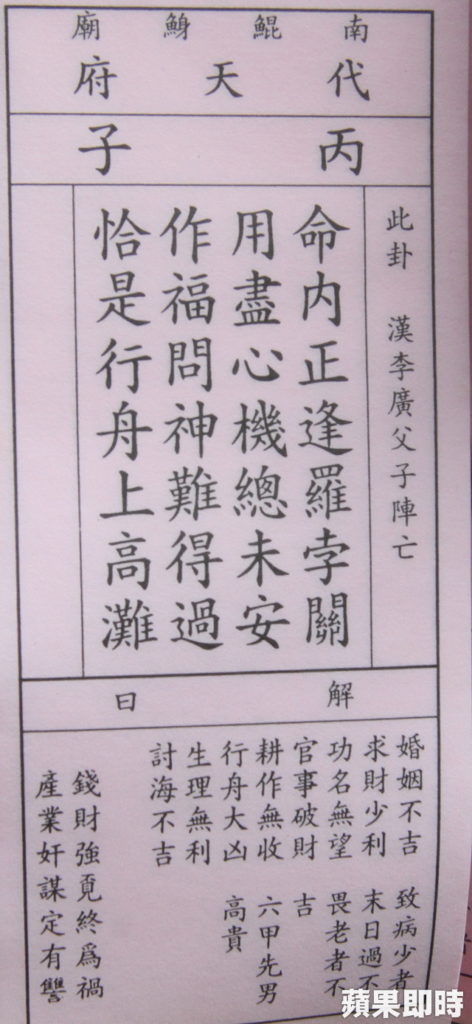 南鯤鯓廟
代天府
丙子
此卦 漢李廣父子陣亡
命内正逢羅孛關
用盡心機總未安
作福問神難得過
恰是行舟上高灘
解曰
婚姻不吉 致病少者
求財少利 末日過不
功名無望 畏老者不
官事破財 吉
耕作無收 六甲先男
行舟大凶 高貴
生理無利
討海不吉
錢財強覓終爲禍
產業奸謀定有讐
蘋果即時